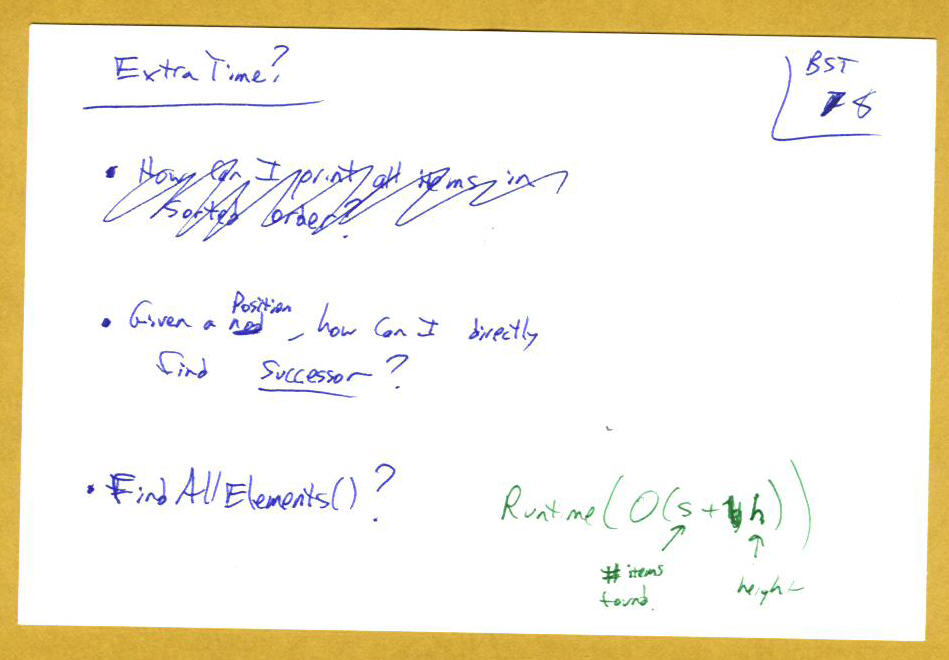 Extra Time?
BST
8
• How Can I print all items in
Sorted order?
• Given a Position, how Can I directly
find Successor?
• FindAllElements()?
Runtime (O(s+h))
# items
found.
height